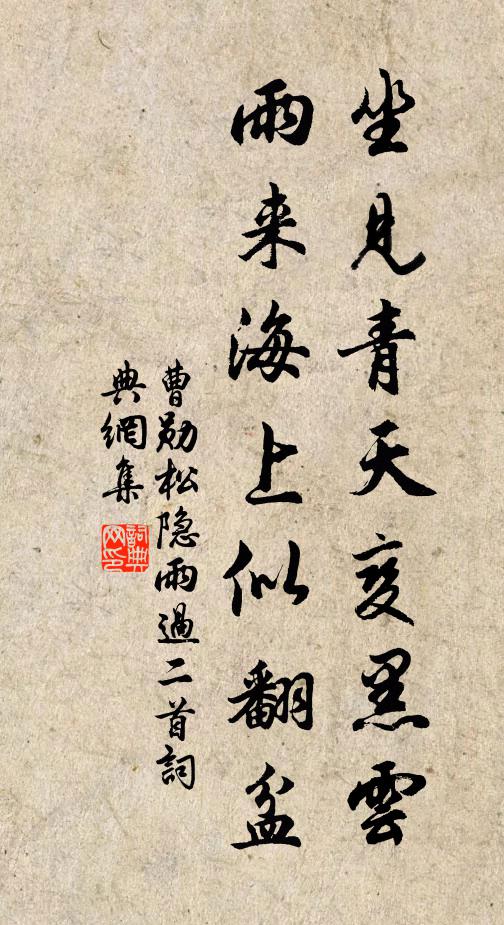 坐見青天变黑雲
雨来海上似翻盆
曹勛松隐雨過二首詞
典網集
詞典網印